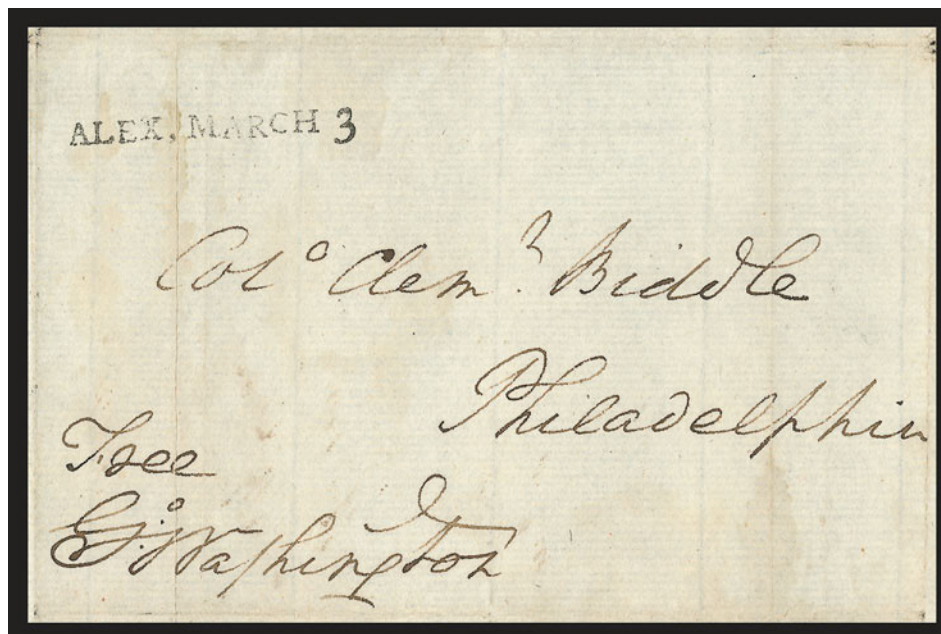 ALEX, MARCH 3
Colº Clemᵗ. Biddle
Philadelphia
Free
Gº:Washington